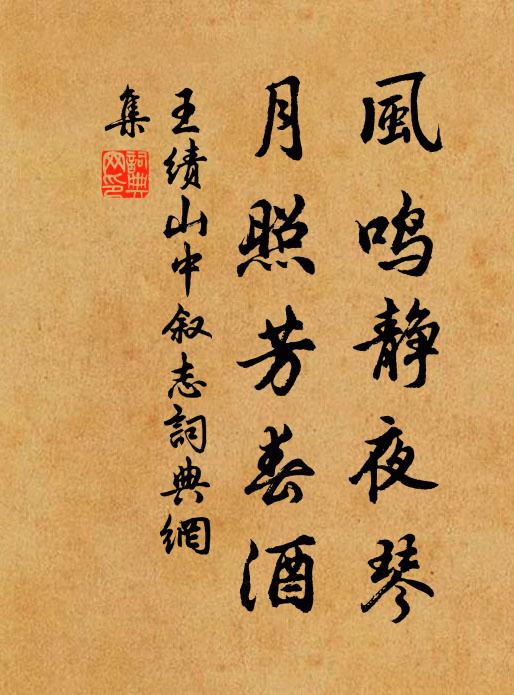 風鸣静夜琴
月照芳春酒
王績山中叙志詞典網
集
詞典
网印